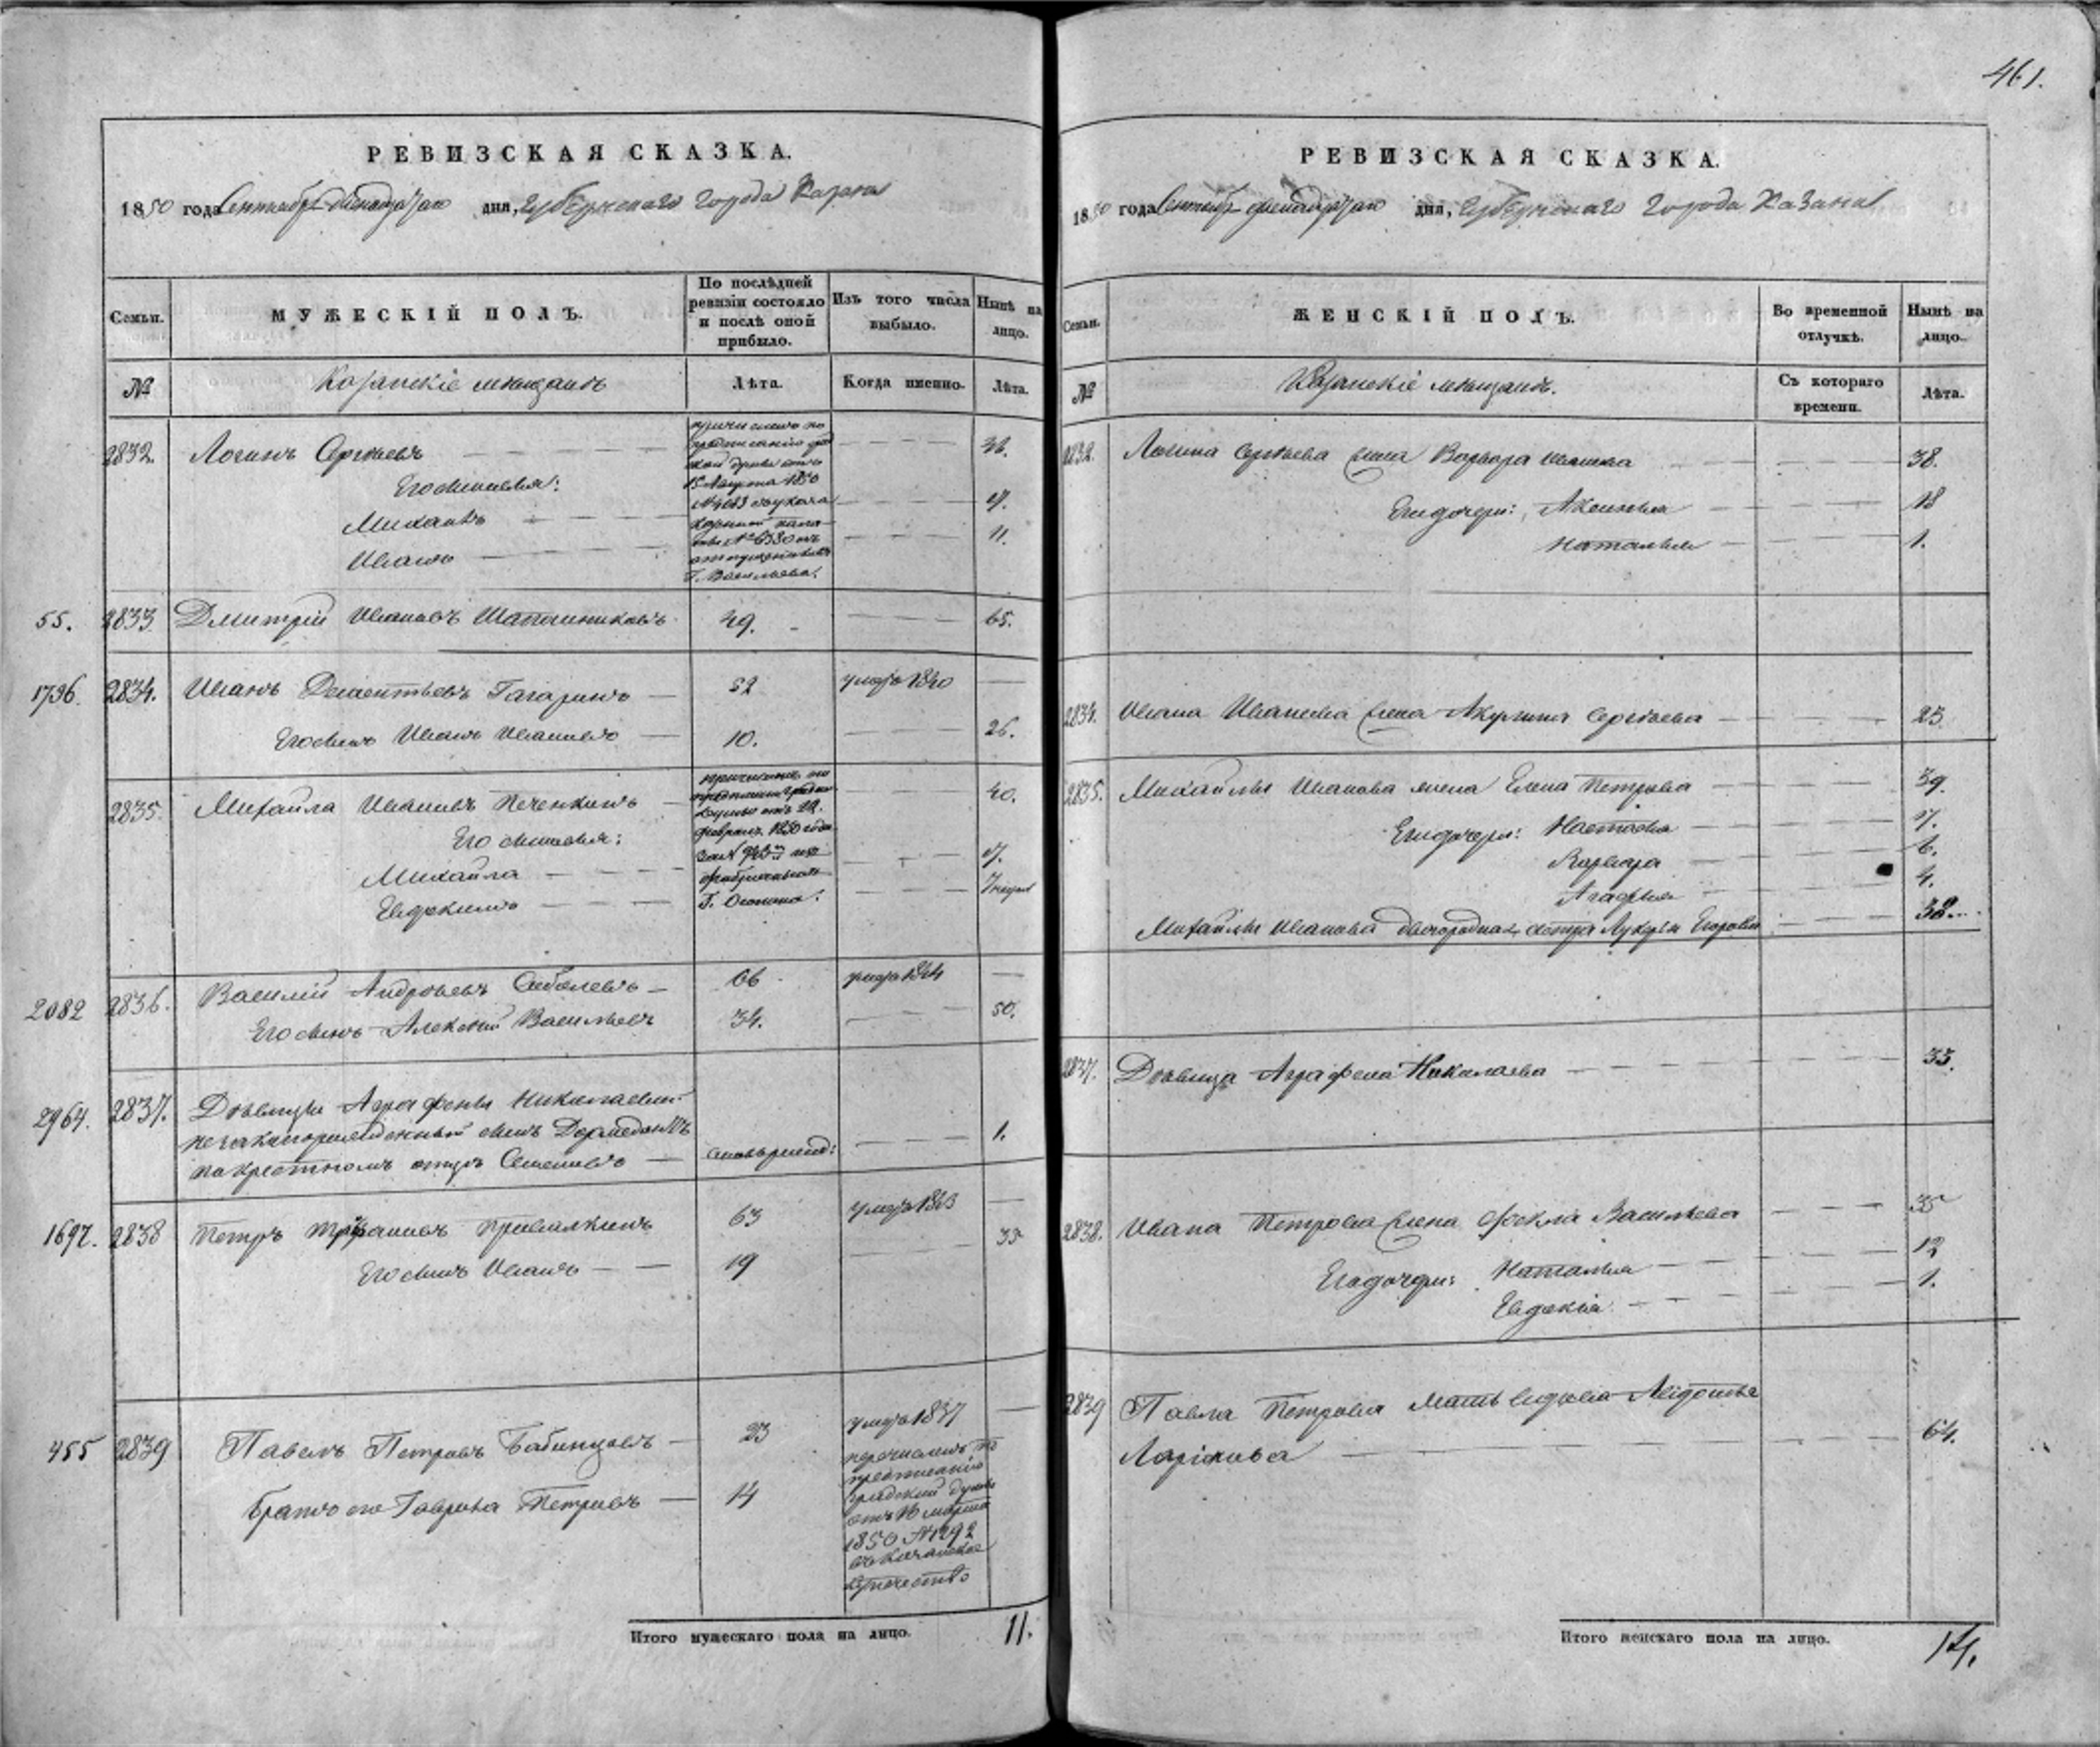 461.
РЕВИЗСКАЯ СКАЗКА.
1850 года Сентября двенадцатаго дня, Губернскаго города Казани
Семьи.
МУЖЕСКІЙ ПОЛЪ.
По послѣдней ревизіи состояло и послѣ оной прибыло.
Изъ того числа выбыло.
Нынѣ на лицо.
№
Казанскіе мѣщане
Лѣта.
Когда именно.
Лѣта.
2832. Логинъ Сергѣевъ
причисленъ по
предписанію
Думы отъ
15 Августа 1850
№ 4683
палаты № 6380 изъ
отпущенныхъ
Г. Васильева.
Его сыновья:
Михаилъ
Иванъ 11.
55. 2833 Дмитрій Ивановъ Шапошниковъ 49. 65.
1796. 2834. Иванъ Дементьевъ Гагаринъ 52 умеръ 1840
Его сынъ Иванъ Ивановъ 10. 26.
2835. Михайла Ивановъ Печенкинъ 40.
причисленъ по
февраля 1850 года
Г. Осокина.
Его сыновья:
Михайла 7.
Евдокимъ
2082 2836. Василій Андреевъ Соболевъ 66 умеръ 1844
Его сынъ Алексѣй Васильевъ 34. 50.
2964. 2837. Дѣвицы Аграфены Николаевой
незаконорожденный сынъ
по крестномъ отцѣ Семеновъ 1.
1697. 2838 Петръ Привалкинъ 63 умеръ 1843
Его сынъ Иванъ 19 35
455 2839 Павелъ Петровъ Бабинцовъ 23 умеръ 1837
Братъ его Гаврила Петровъ 14
перечисленъ по
предписанію
градской думы
отъ 16 марта
1850 № 1292
въ казанское
купечество
Итого мужескаго пола на лицо. 11.
РЕВИЗСКАЯ СКАЗКА.
1850 года Сентября двенадцатаго дня, Губернскаго города Казани
Семьи.
ЖЕНСКІЙ ПОЛЪ.
Во временной отлучкѣ.
Нынѣ на лицо.
№
Казанскіе мѣщане.
Съ котораго времени.
Лѣта.
2832. Логина Сергѣева жена Варвара Иванова 38.
Его дочери: Аксинья 18
Наталья 1.
2834. Ивана Иванова жена Акулина Сергѣева 23
2835. Михайлы Иванова жена Елена Петрова 39.
Его дочери: Настасья 7.
Варвара 6.
Агафья 4.
Михайлы Иванова двоюродная сестра Лукерья Егорова 32
2837. Дѣвица Аграфена Николаева 33.
2838. Ивана Петрова жена Фекла Васильева 35
Его дочери: Наталья 12
Евдокія 1.
2839 Павла Петрова мать вдова
Ларіонова 64.
Итого женскаго пола на лицо. 14.